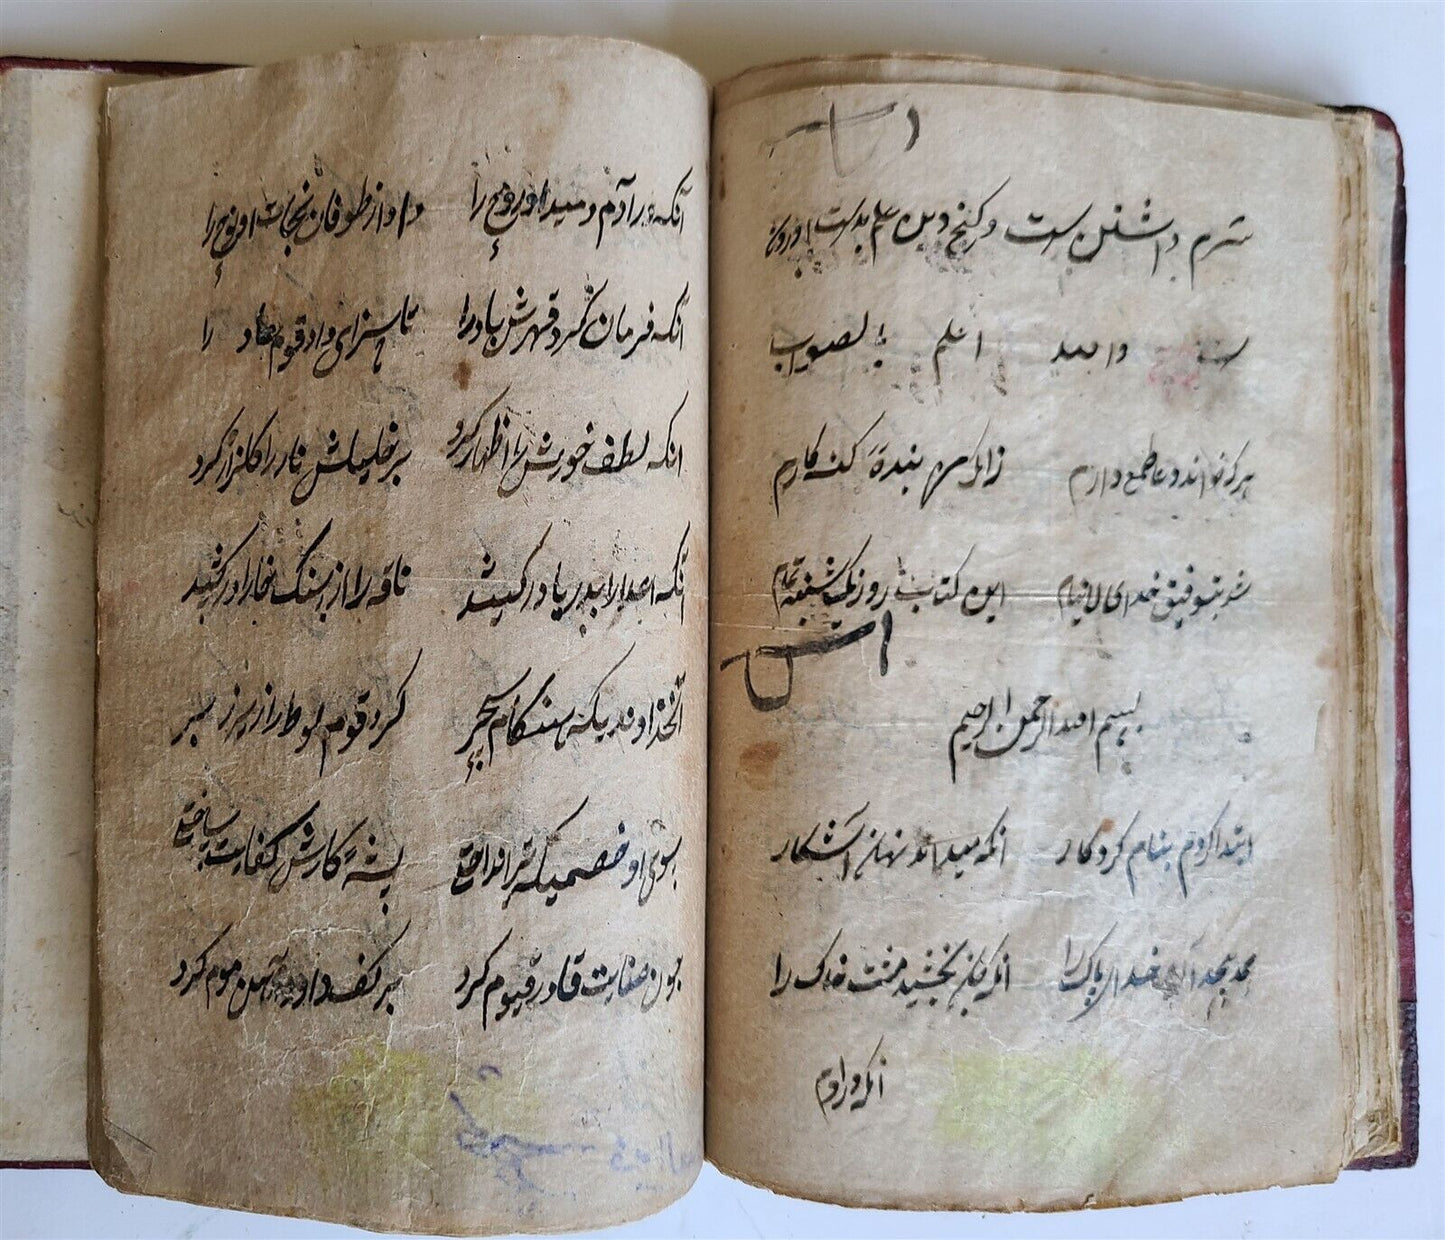 شرم داشتن بدست و گنج و دین علم بدست اوردن
است والله اعلم بالصواب
هرکه خواند دعا طمع دارم زانکه من بنده گنه کارم
شد بتوفیق خدای لاینام این کتاب روز یکشنبه تمام
بسم الله الرحمن الرحیم
ابتدا کردم بنام کردکار انکه میداند نهان و آشکار
حمد بیحد آن خدای پاک را انکه ایمان بخشید مشت خاک را
انکه در ادم
آنکه در آدم دمید او روح را داد از طوفان نجات او نوح را
آنکه فرمان کرد قهرش باد را تا سزای داد قوم عاد را
انکه لطف خویش را اظهار کرد بر خلیلش نار را کلزار کرد
آنکه اعدا را بدریا در کشید ناقه را از سنک خارا در کشید
آنخداوندیکه هنکام سحر کرد قوم لوط را زیر زبر
سوی او خصمیکه تیر انداخته پشه کارش کفایت ساخته
چون عنایت قادر قیوم کرد بر کف داود آهن موم کرد